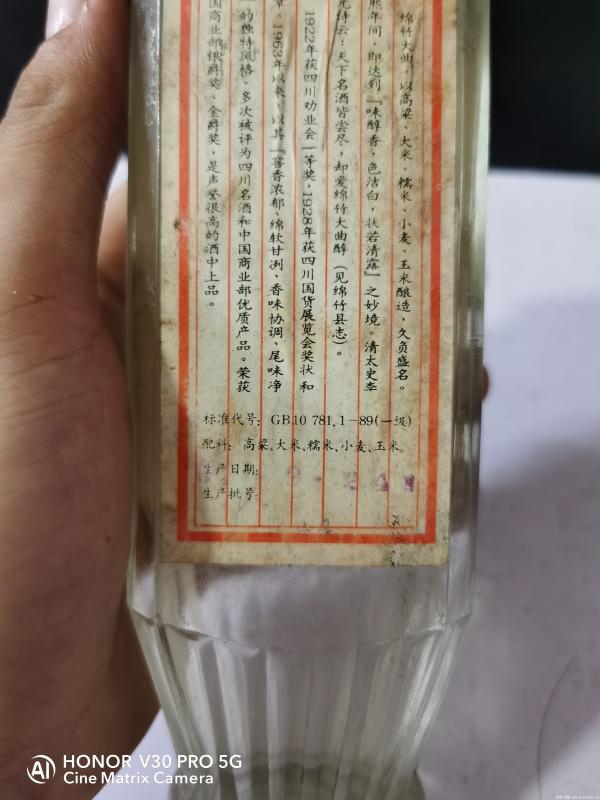 绵竹大曲，以高粱、大米、糯米、小麦、玉米酿造，久负盛名。
熙年间，即达到『味醇香，色洁白，状若清露』之妙境。清太史李
元诗云：天下名酒皆尝尽，却爱绵竹大曲醇（见绵竹县志）。
1922年获四川劝业会一等奖，1928年获四川国货展览会奖状和
章。1963年以来，以其『窖香浓郁、绵软甘冽、香味协调、尾味净
的独特风格，多次被评为四川名酒和中国商业部优质产品。荣获
国商业部银爵奖、金爵奖，是声誉很高的酒中上品。
标准代号：GB10 781.1-89(一级)
配料：高粱、大米、糯米、小麦、玉米。
生产日期：
生产批号：
HONOR V30 PRO 5G
Cine Matrix Camera